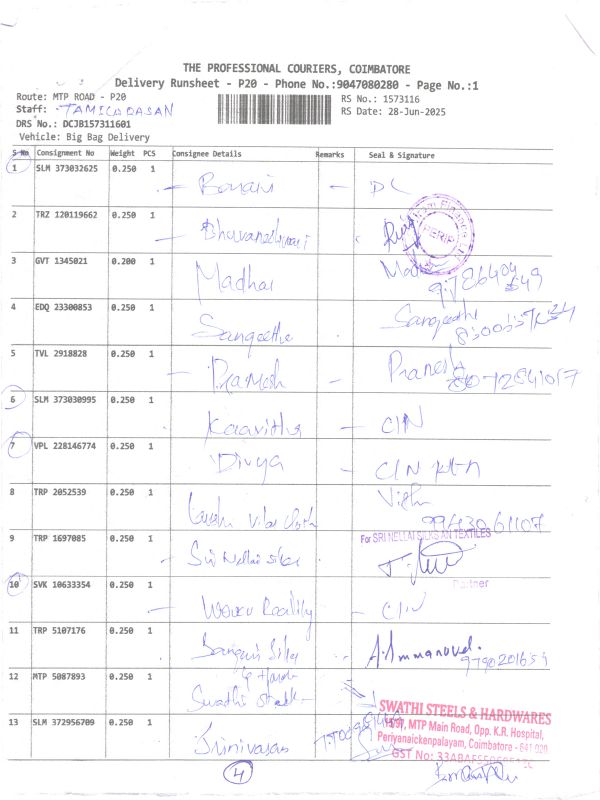 THE PROFESSIONAL COURIERS, COIMBATORE
Delivery Runsheet - P20 - Phone No.:9047080280 - Page No.:1
Route: MTP ROAD - P20
RS No.: 1573116
Staff: TAMILDASAN
RS Date: 28-Jun-2025
DRS No.: DCJB157311601
Vehicle: Big Bag Delivery
S No Consignment No Weight PCS Consignee Details Remarks Seal & Signature
1 SLM 373032625 0.250 1 DL
2 TRZ 120119662 0.250 1 Bhuvaneshwari
3 GVT 1345021 0.200 1 Madhav
4 EDQ 23300853 0.250 1 Sangeetha Sangeetha
5 TVL 2918828 0.250 1 Pramesh Pranesh
8072841017
6 SLM 373030995 0.250 1 Kaavitha - CIN
7 VPL 228146774 0.250 1 Divya - CIN
8 TRP 2052539 0.250 1
9943061107
9 TRP 1697085 0.250 1 Sri Nellai silks
For SRI NELLAI SILKS AN TEXTILES
Partner
10 SVK 10633354 0.250 1 - CIN
11 TRP 5107176 0.250 1 A. Immanuvel.
9790201654
12 MTP 5087893 0.250 1 Swathi
13 SLM 372956709 0.250 1 Srinivasan
SWATHI STEELS & HARDWARES
MTP Main Road, Opp. K.R. Hospital,
Periyanaickenpalayam, Coimbatore - 641 020
GST No:
4